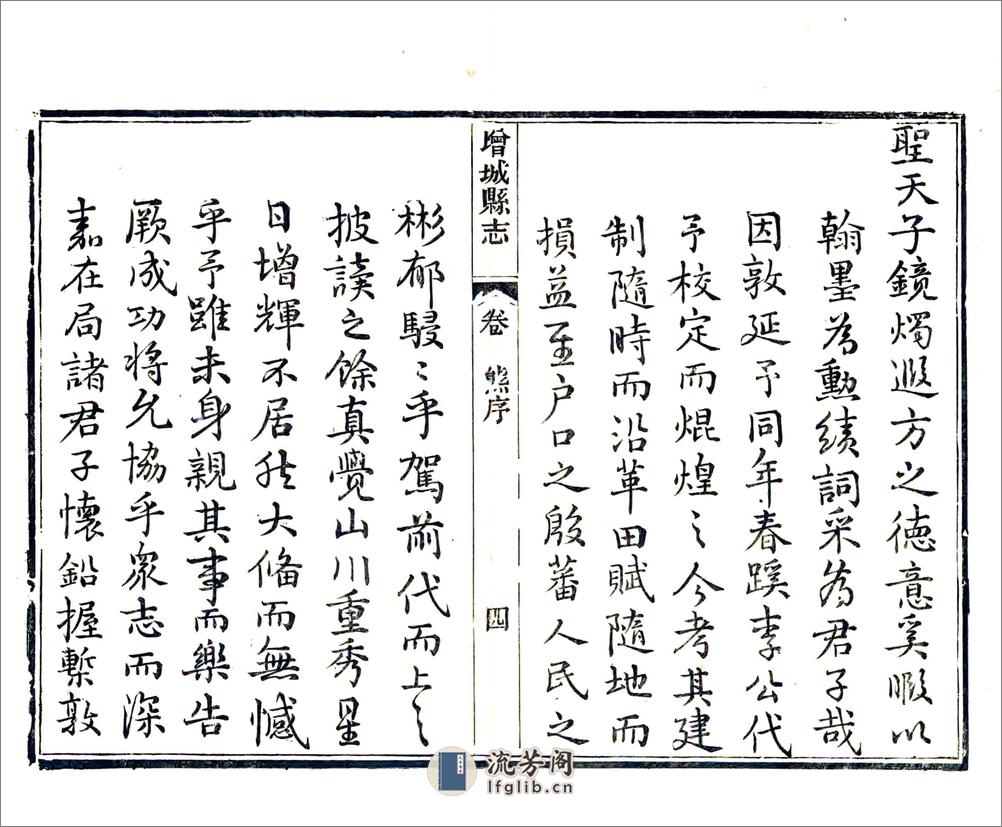 聖天子鏡燭遐方之德意奚暇以
翰墨為勳績詞采為君子哉
因敦延予同年春蹊李公代
予校定而焜煌之今考其建
制隨時而沿革田賦隨地而
損益至户口之殷蕃人民之
增城縣志
卷 熊序
四
彬郁駸々乎駕前代而上之
披讀之餘真覺山川重秀星
日增輝不居然大備而無憾
乎予雖未身親其事而樂告
厥成功將允協乎眾志而深
嘉在局諸君子懷鉛握槧敦
流芳阁
lfglib.cn